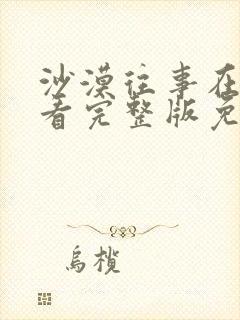 沙漠往事在
看完整版免
乌榄